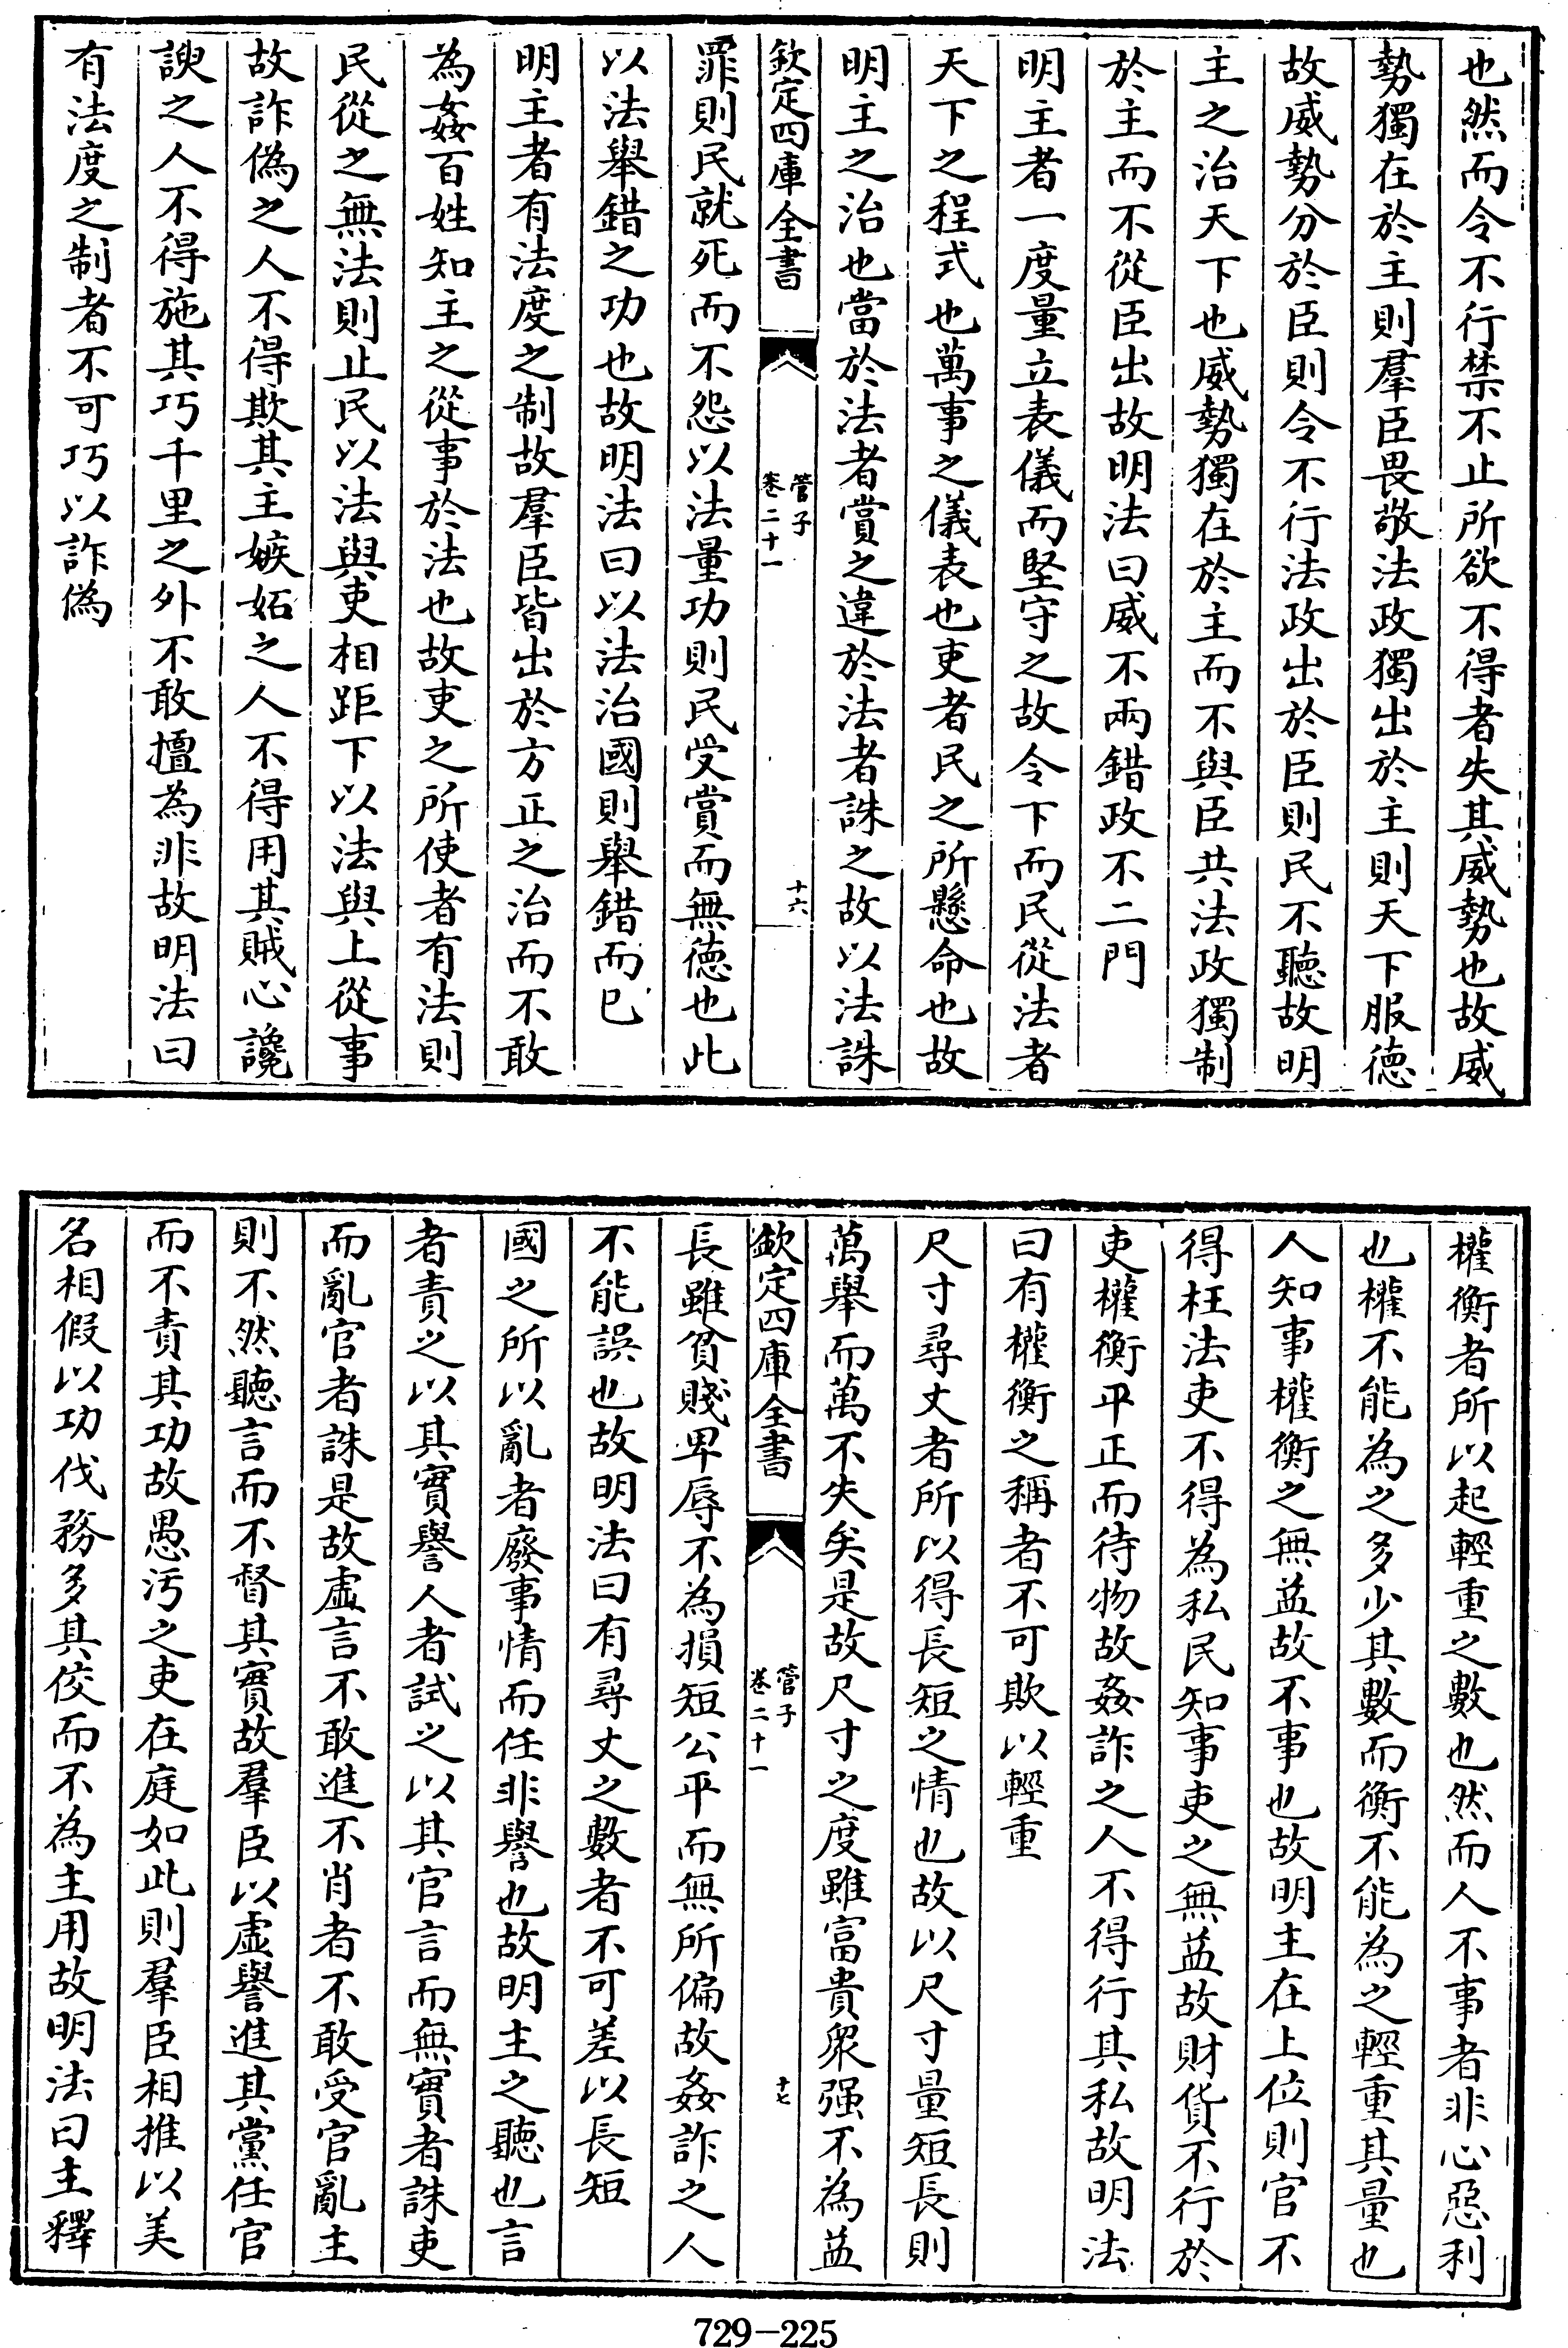 也然而令不行禁不止所欲不得者失其威勢也故威
勢獨在於主則羣臣畏敬法政獨出於主則天下服德
故威勢分於臣則令不行法政出於臣則民不聽故明
主之治天下也威勢獨在於主而不與臣共法政獨制
於主而不從臣出故明法曰威不兩錯政不二門
明主者一度量立表儀而堅守之故令下而民從法者
天下之程式也萬事之儀表也吏者民之所懸命也故
明主之治也當於法者賞之違於法者誅之故以法誅
欽定四庫全書
管子
卷二十一
十六
罪則民就死而不怨以法量功則民受賞而無德也此
以法舉錯之功也故明法曰以法治國則舉錯而已
明主者有法度之制故羣臣皆出於方正之治而不敢
為姦百姓知主之從事於法也故吏之所使者有法則
民從之無法則止民以法與吏相距下以法與上從事
故詐偽之人不得欺其主嫉妬之人不得用其賊心讒
諛之人不得施其巧千里之外不敢擅為非故明法曰
有法度之制者不可巧以詐偽
權衡者所以起輕重之數也然而人不事者非心惡利
也權不能為之多少其數而衡不能為之輕重其量也
人知事權衡之無益故不事也故明主在上位則官不
得枉法吏不得為私民知事吏之無益故財貨不行於
吏權衡平正而待物故姦詐之人不得行其私故明法
曰有權衡之稱者不可欺以輕重
尺寸尋丈者所以得長短之情也故以尺寸量短長則
萬舉而萬不失矣是故尺寸之度雖富貴衆强不為益
欽定四庫全書
管子
卷二十一
十七
長雖貧賤卑辱不為損短公平而無所偏故姦詐之人
不能誤也故明法曰有尋丈之數者不可差以長短
國之所以亂者廢事情而任非譽也故明主之聽也言
者責之以其實譽人者試之以其官言而無實者誅吏
而亂官者誅是故虛言不敢進不肖者不敢受官亂主
則不然聽言而不督其實故羣臣以虛譽進其黨任官
而不責其功故愚汚之吏在庭如此則羣臣相推以美
名相假以功伐務多其佼而不為主用故明法曰主釋
729-225